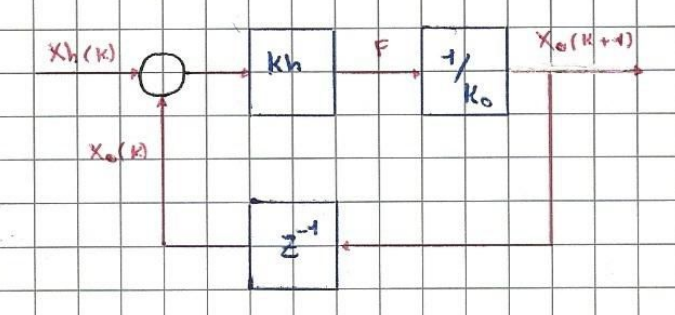 Xh(K)
Kh
F
1/Ko
Xo(K+1)
Xo(K)
Z⁻¹